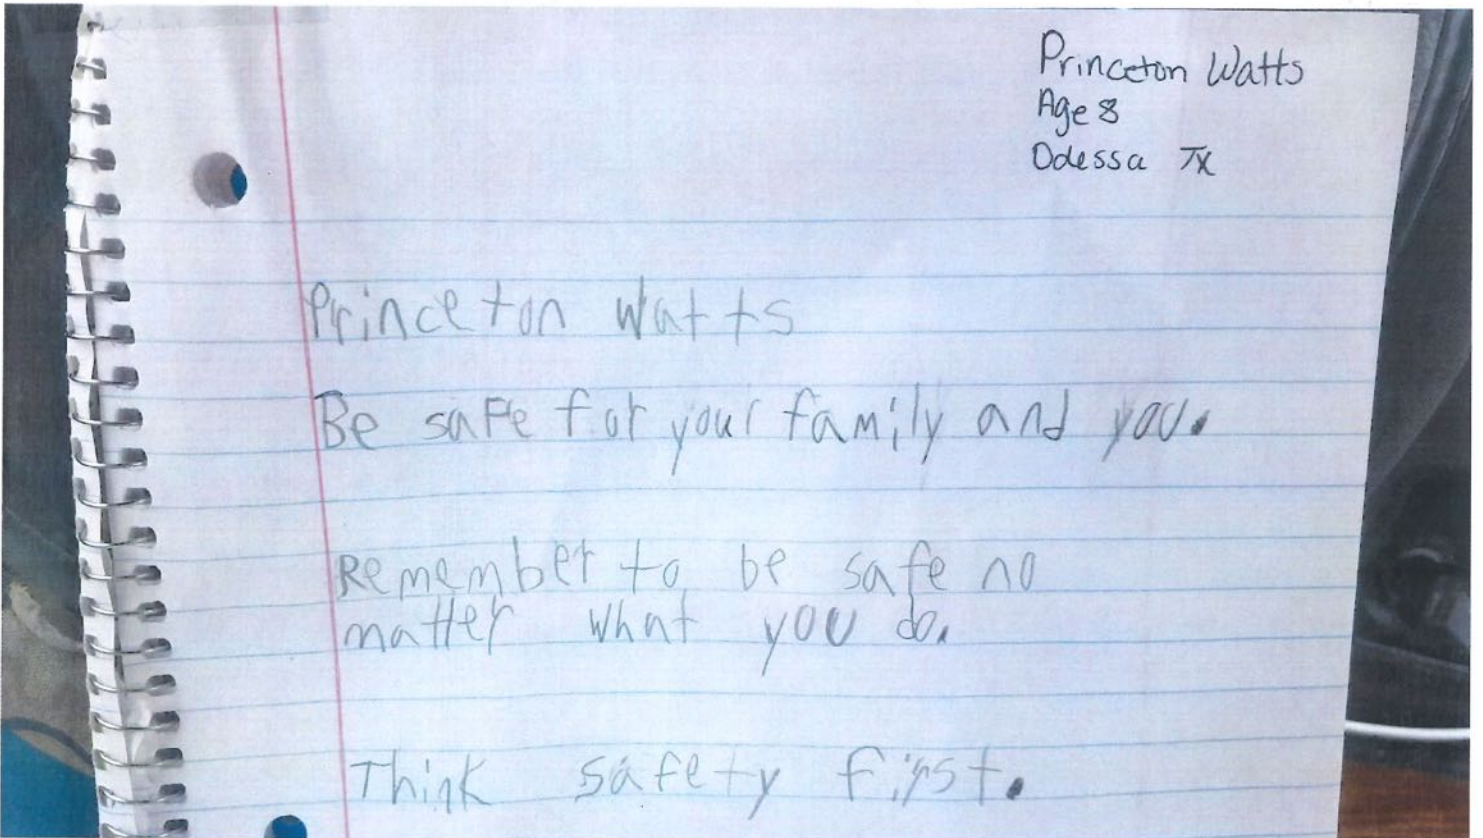 Princeton Watts
Age 8
Odessa Tx
Princeton Watts
Be safe for your family and you.
Remember to be safe no
matter what you do.
Think safety first.